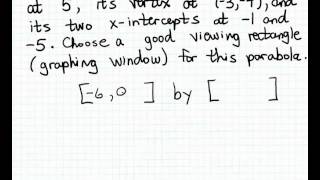 at 5, its vertex at (-3,-4), and
its two x-intercepts at -1 and
-5. Choose a good viewing rectangle
(graphing window) for this parabola.
[-6,0 ] by [ ]